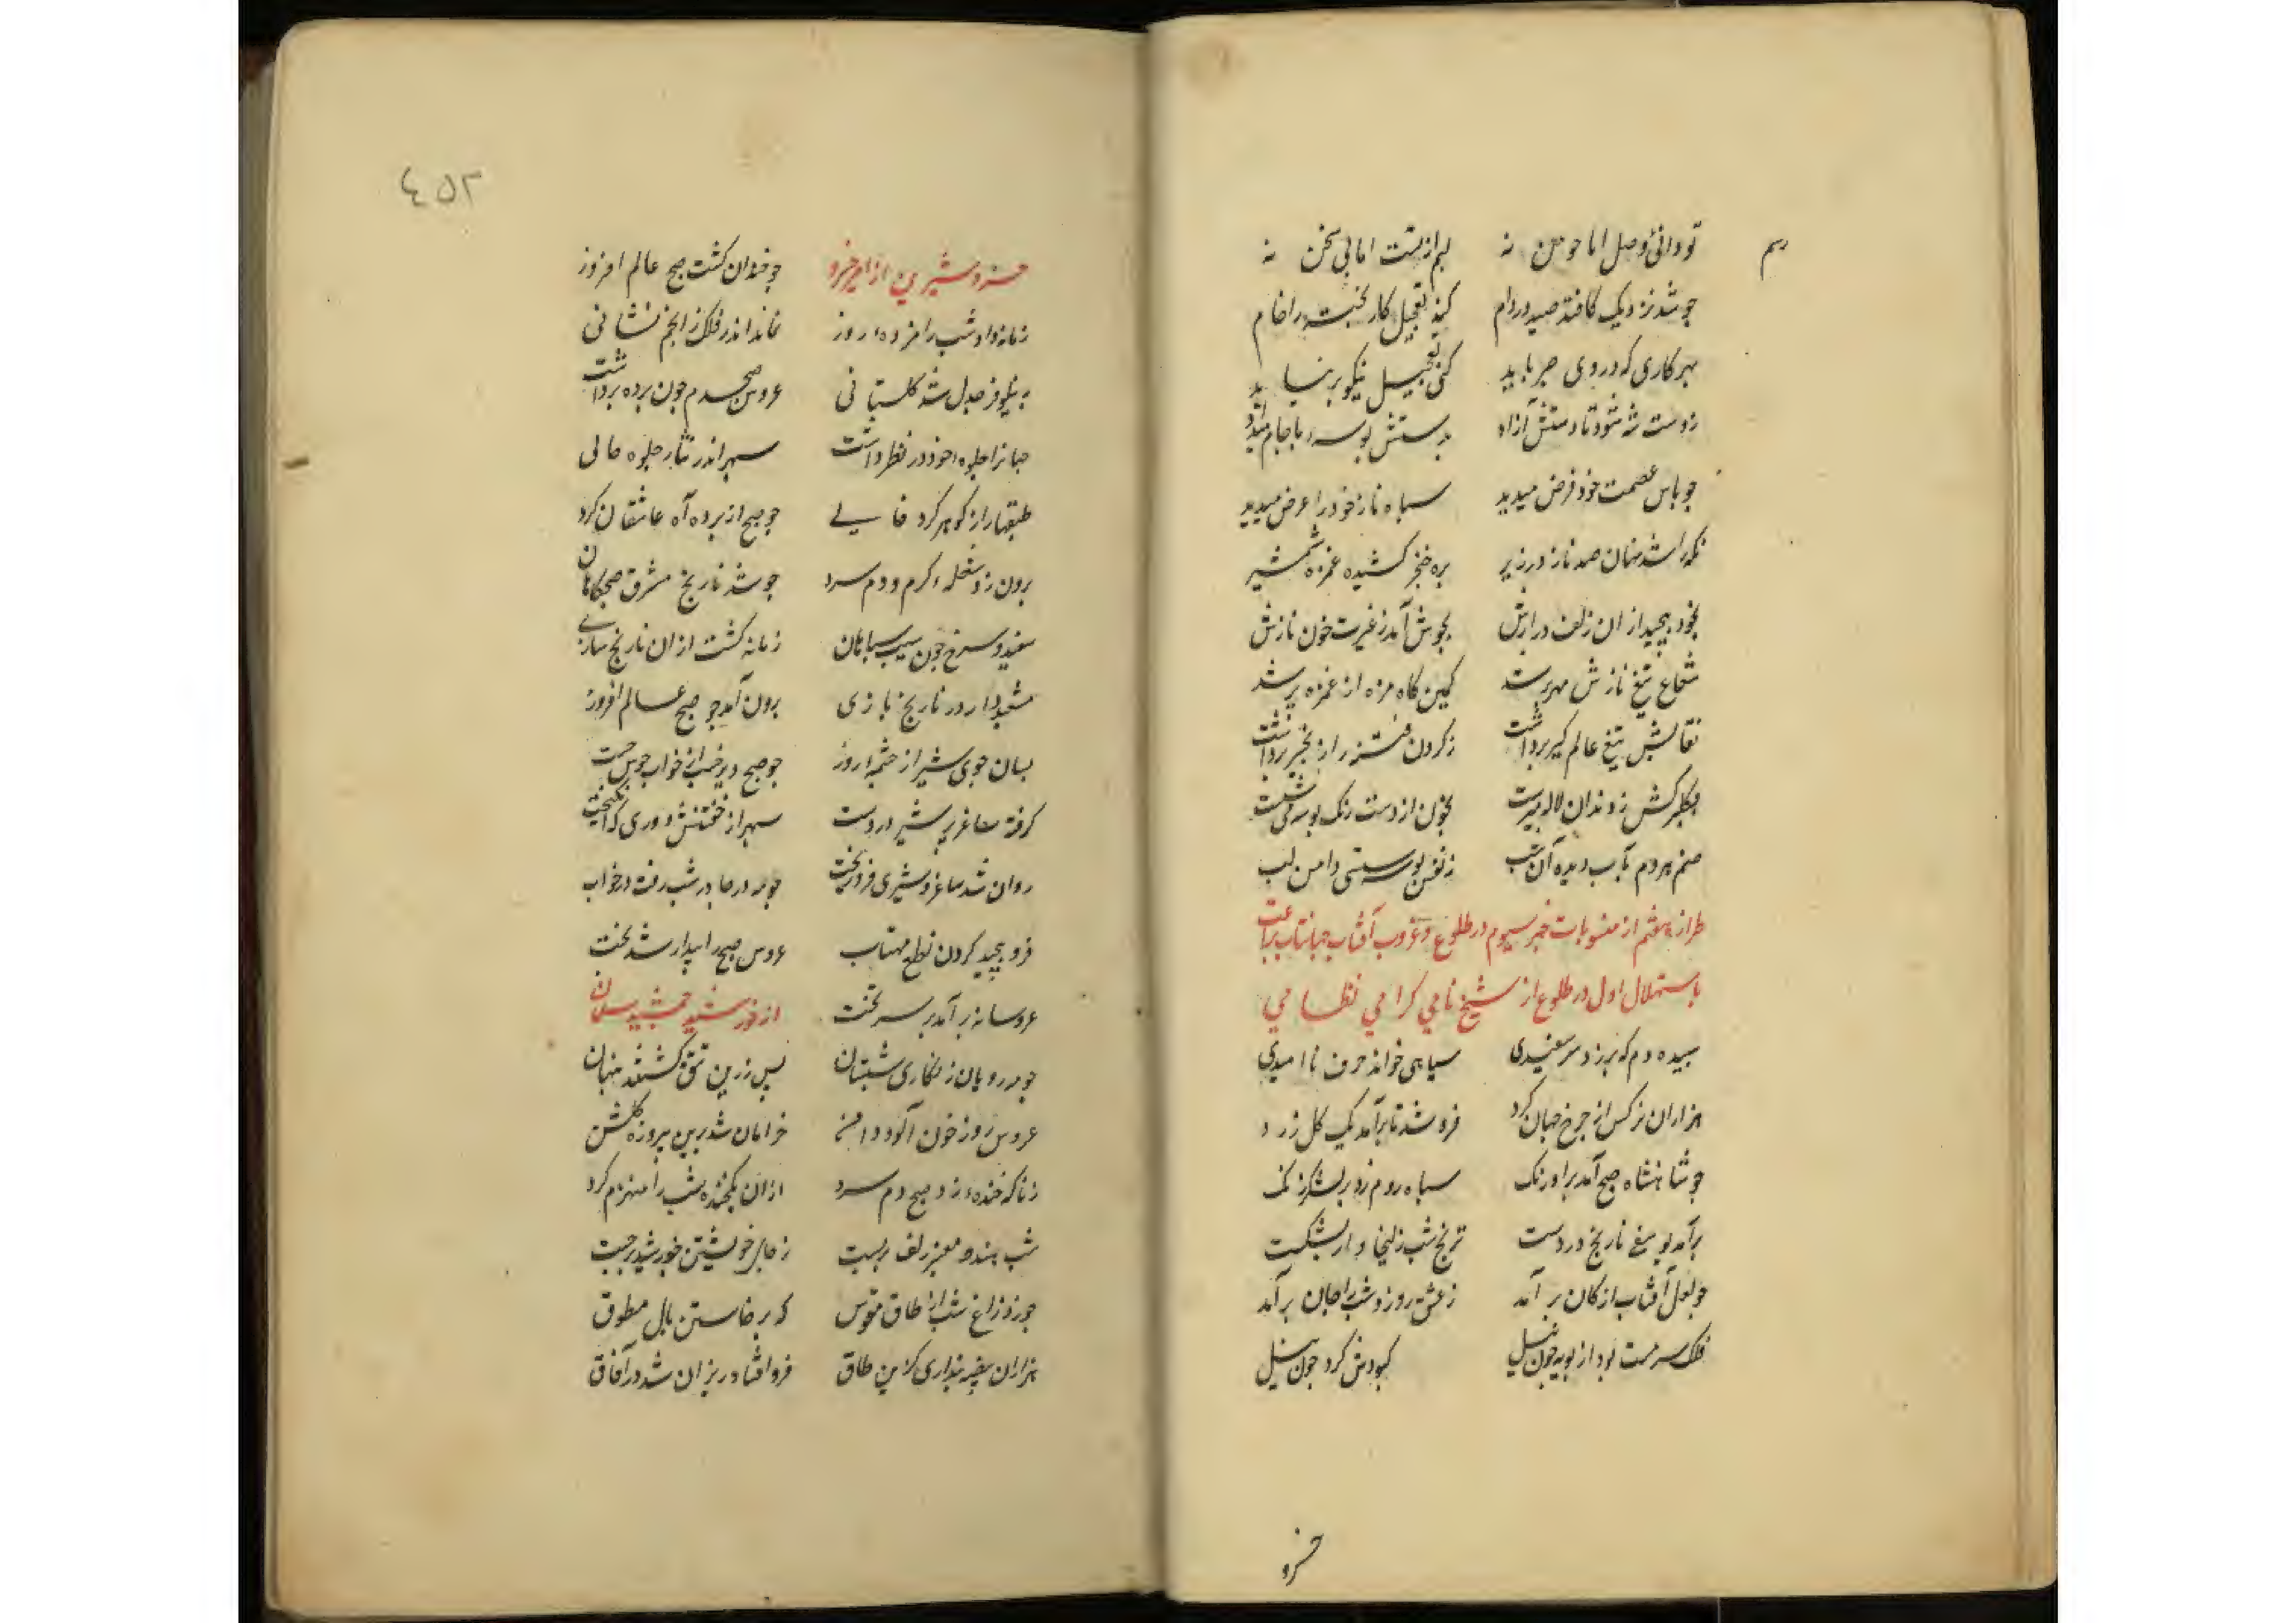 تو دانی وصل اما چو من نه لبم از تست اما بی سخن نه
چو شد نزدیک کافتد صید در دام کند تعجیل کار پخته را خام
بهر کاری که در وی صبر باید کنی تعجیل نیکو بر نیاید
ز دست شه شود تا دستش آزاد بدستش بوسه با جام میداد
چو پاس عصمت خود فرض میدید سپاه ناز خود را عرض میدید
نگه را شد نهان صد ناز در زیر بره خنجر کشیده غمزه شمشیر
بخود پیچید از ان زلف درازش بجوش آمد ز غیرت خون نازش
شعاع تیغ نازش کمین کاه مژه از غمزه پر شد
نقابش تیغ عالم کیر برداشت ز کردن فتنه را زنجیر برداشت
بخون از دست رنک بوسه می شست
صنم هر دم بآب دیده آن شب ز نقش بوسه شستی دامن لب
طرازه هفتم از منسوبات خبر سیوم در طلوع و غروب آفتاب جهانتاب براعت
باستهلال اول در طلوع از شیخ نامی کرامی نظامی
سپیده دم که بر زد سر سفیدی سیاهی خواند حرف ناامیدی
هزاران نرکس از چرخ جهان کرد فرو شد تا بر آمد یک کل زرد
چو شاهنشاه صبح آمد بر اورنک سپاه روم زد بر لشکر زنک
برآمد یوسفی نارنج در دست ترنج شب زلیخا وار بشکست
چو لعل آفتاب از کان بر آمد ز عشق روز و شب را جان بر آمد
فلک سرمست بود از پویه چون پیل کبودش کرد چون نیل
خسرو
٤٥٢
خسرو شیرین از امیر خسرو چو خندان کشت صبح عالم افروز
زمانه داد شب را مژده روز نماند اندر فلک ز انجم نشانی
به نیلوفر بدل شد کلستانی عروس صبحدم چون پرده برداشت
جهانرا جلوه خود در نظر داشت سپهر اندر نثار جلوه حالی
طبقها را ز کوهر کرد خالی چو صبح از پرده آه عاشقان کرد
برون زد شعله کرم و دم سرد چو شد نارنج مشرق صبحکاهان
سفید و سرخ چون سیب سپاهان زمانه کشت از ان نارنج سازی
مشعبدوار در نارنج بازی برون آمد چو صبح عالم افروز
بسان جوی شیر از چشمه روز
کرفته ساغر پر شیر در دست
روان شد ساغر و شیری فرو ریخت چو مه در چادر شب رفت در خواب
فرو پیچید کردون نطع مهتاب عروس صبح را بیدار شد بخت
عروسانه بر آمد بر سر تخت از خورشید جمشید سلمان
چو مه رویان زنکاری شبستان پس زرین تتق کشتند پنهان
عروس روز خون آلود دامن خرامان شد برین پیروزه کلشن
زناکه خنده زد صبح دم سرد ازان یکخنده شب را منهزم کرد
شب هندو معنبر زلف بر بست ز جای خویشتن خورشید برجست
چو زد زاغ شب از طاق مقوس که برخاستن بال مطوق
هزاران بیضه پنداری کزین طاق فرو افتاد ریزان شد در آفاق